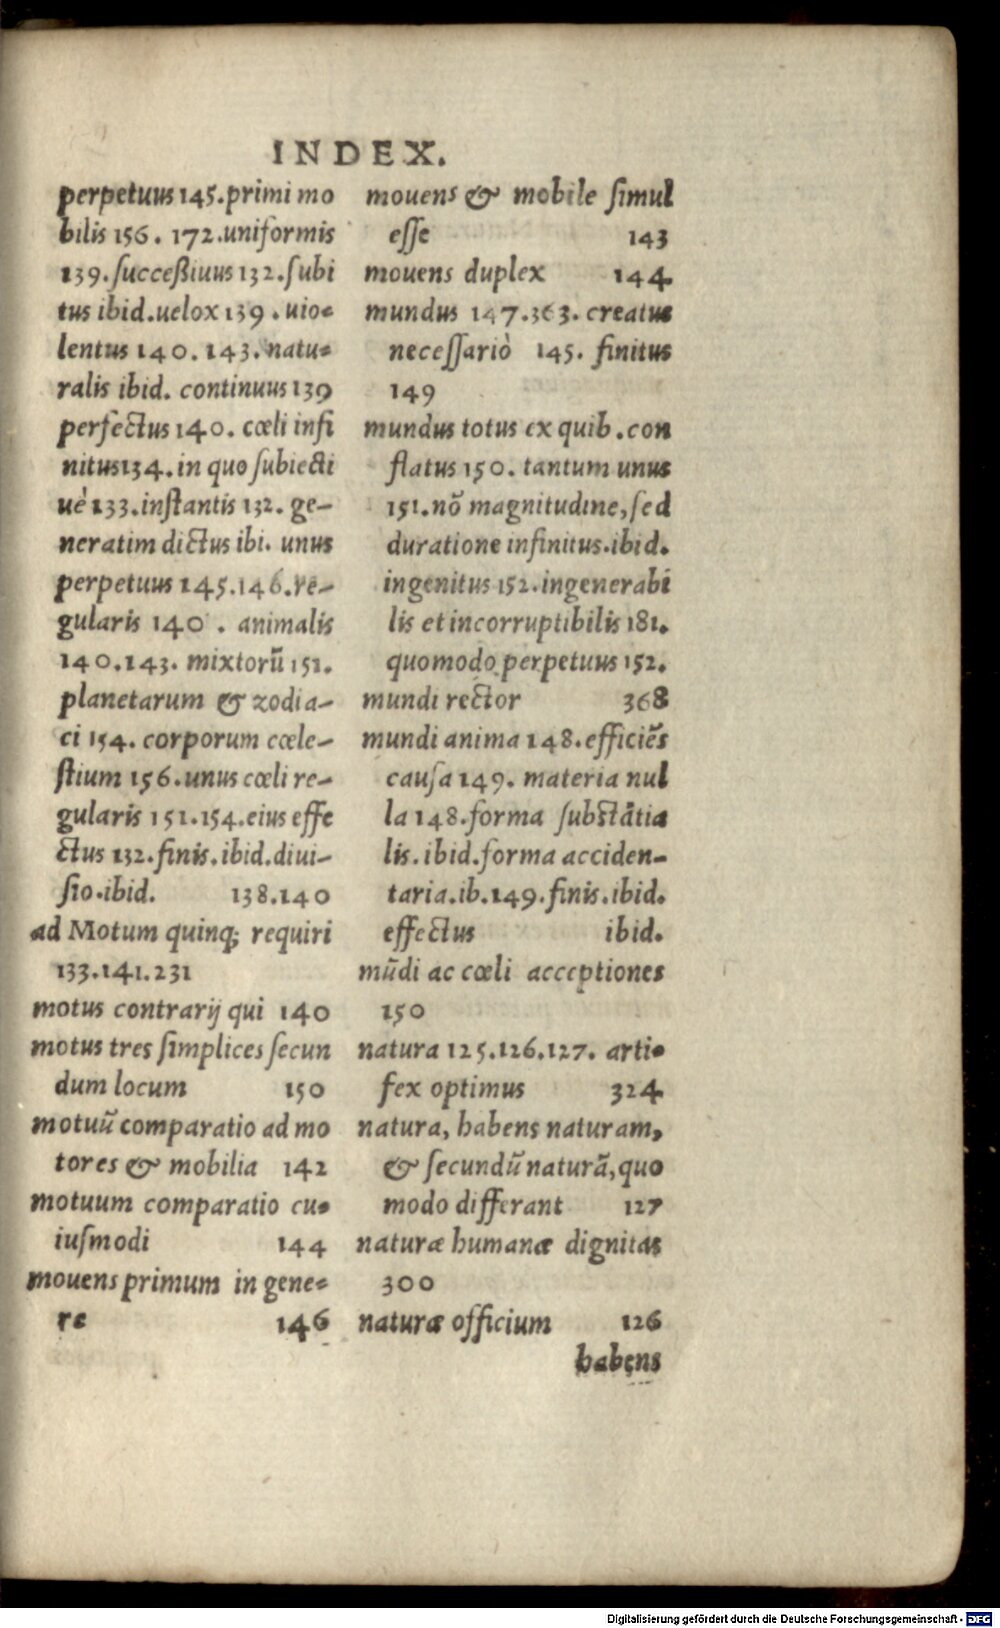 INDEX.
perpetuus 145. primi mo
bilis 156. 172. uniformis
139. ſucceßiuus 132. ſubi
tus ibid. uelox 139. uio-
lentus 140. 143. natu-
ralis ibid. continuus 139
perfectus 140. cœli infi
nitus 134. in quo ſubiecti
uè 133. inſtantis 132. ge-
neratim dictus ibi. unus
perpetuus 145. 146. re-
gularis 140. animalis
140. 143. mixtorũ 151.
planetarum & zodia-
ci 154. corporum cœle-
ſtium 156. unus cœli re-
gularis 151. 154. eius effe
ctus 132. finis. ibid. diui-
ſio. ibid. 138. 140
ad Motum quinq; requiri
133. 141. 231
motus contrarij qui 140
motus tres ſimplices ſecun
dum locum 150
motuũ comparatio ad mo
tores & mobilia 142
motuum comparatio cu-
iuſmodi 144
mouens primum in gene-
re 146
mouens & mobile ſimul
eſſe 143
mouens duplex 144
mundus 147. 363. creatus
neceſſariò 145. finitus
149
mundus totus ex quib. con
flatus 150. tantum unus
151. nõ magnitudine, ſed
duratione infinitus. ibid.
ingenitus 152. ingenerabi
lis et incorruptibilis 181.
quomodo perpetuus 152.
mundi rector 368
mundi anima 148. efficiẽs
cauſa 149. materia nul
la 148. forma ſubſtãtia
lis. ibid. forma acciden-
taria. ib. 149. finis. ibid.
effectus ibid.
mũdi ac cœli acceptiones
150
natura 125. 126. 127. arti-
fex optimus 324
natura, habens naturam,
& ſecundũ naturã, quo
modo differant 127
naturæ humanæ dignitas
300
naturæ officium 126
habens
Digitalisierung gefördert durch die Deutsche Forschungsgemeinschaft - DFG